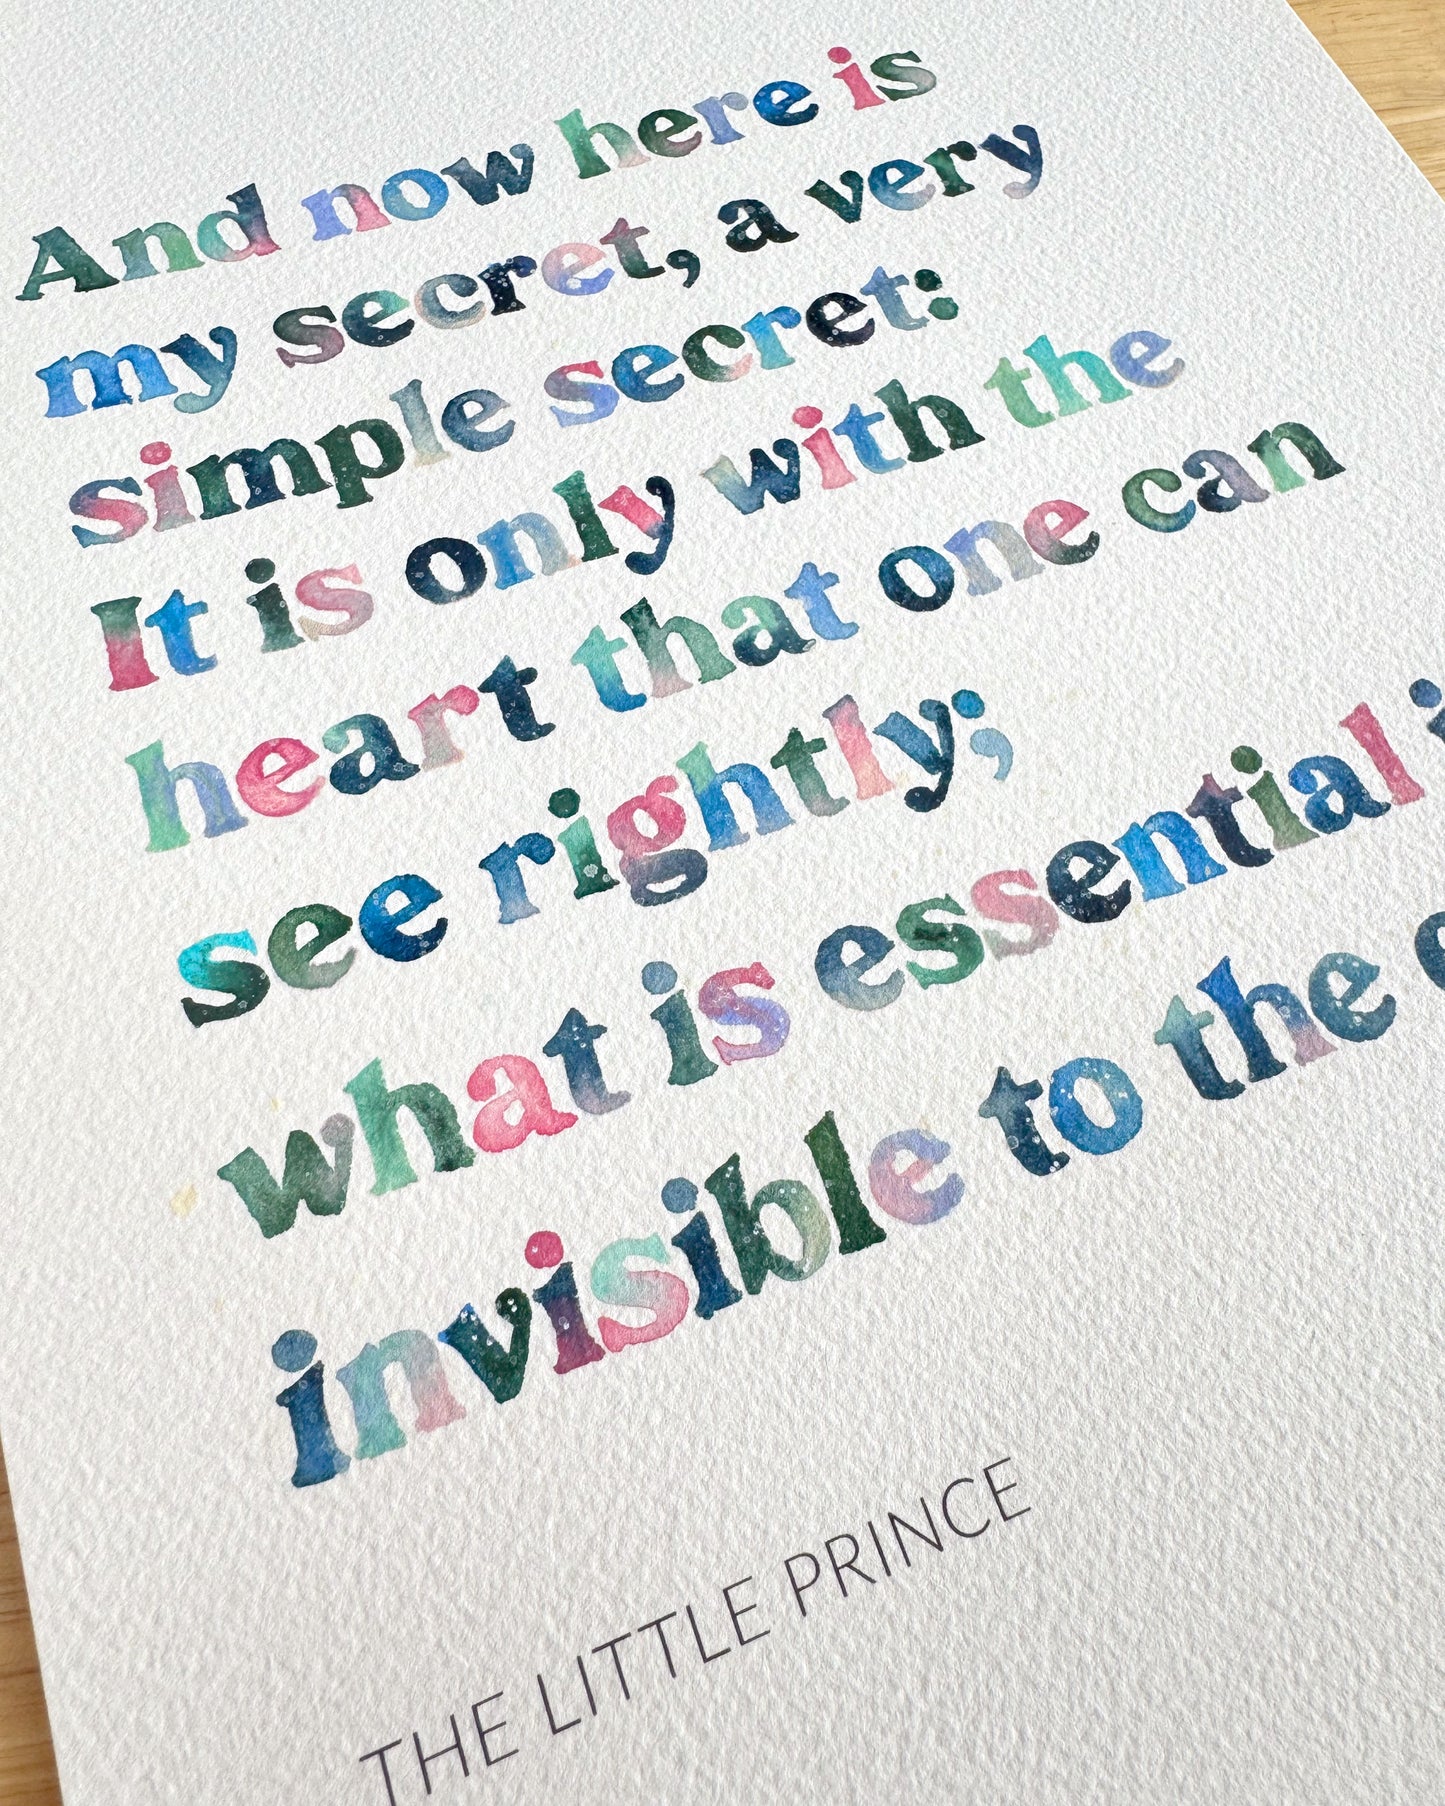 And now here is
my secret, a very
simple secret:
It is only with the
heart that one can
see rightly;
what is essential
invisible to the
THE LITTLE PRINCE